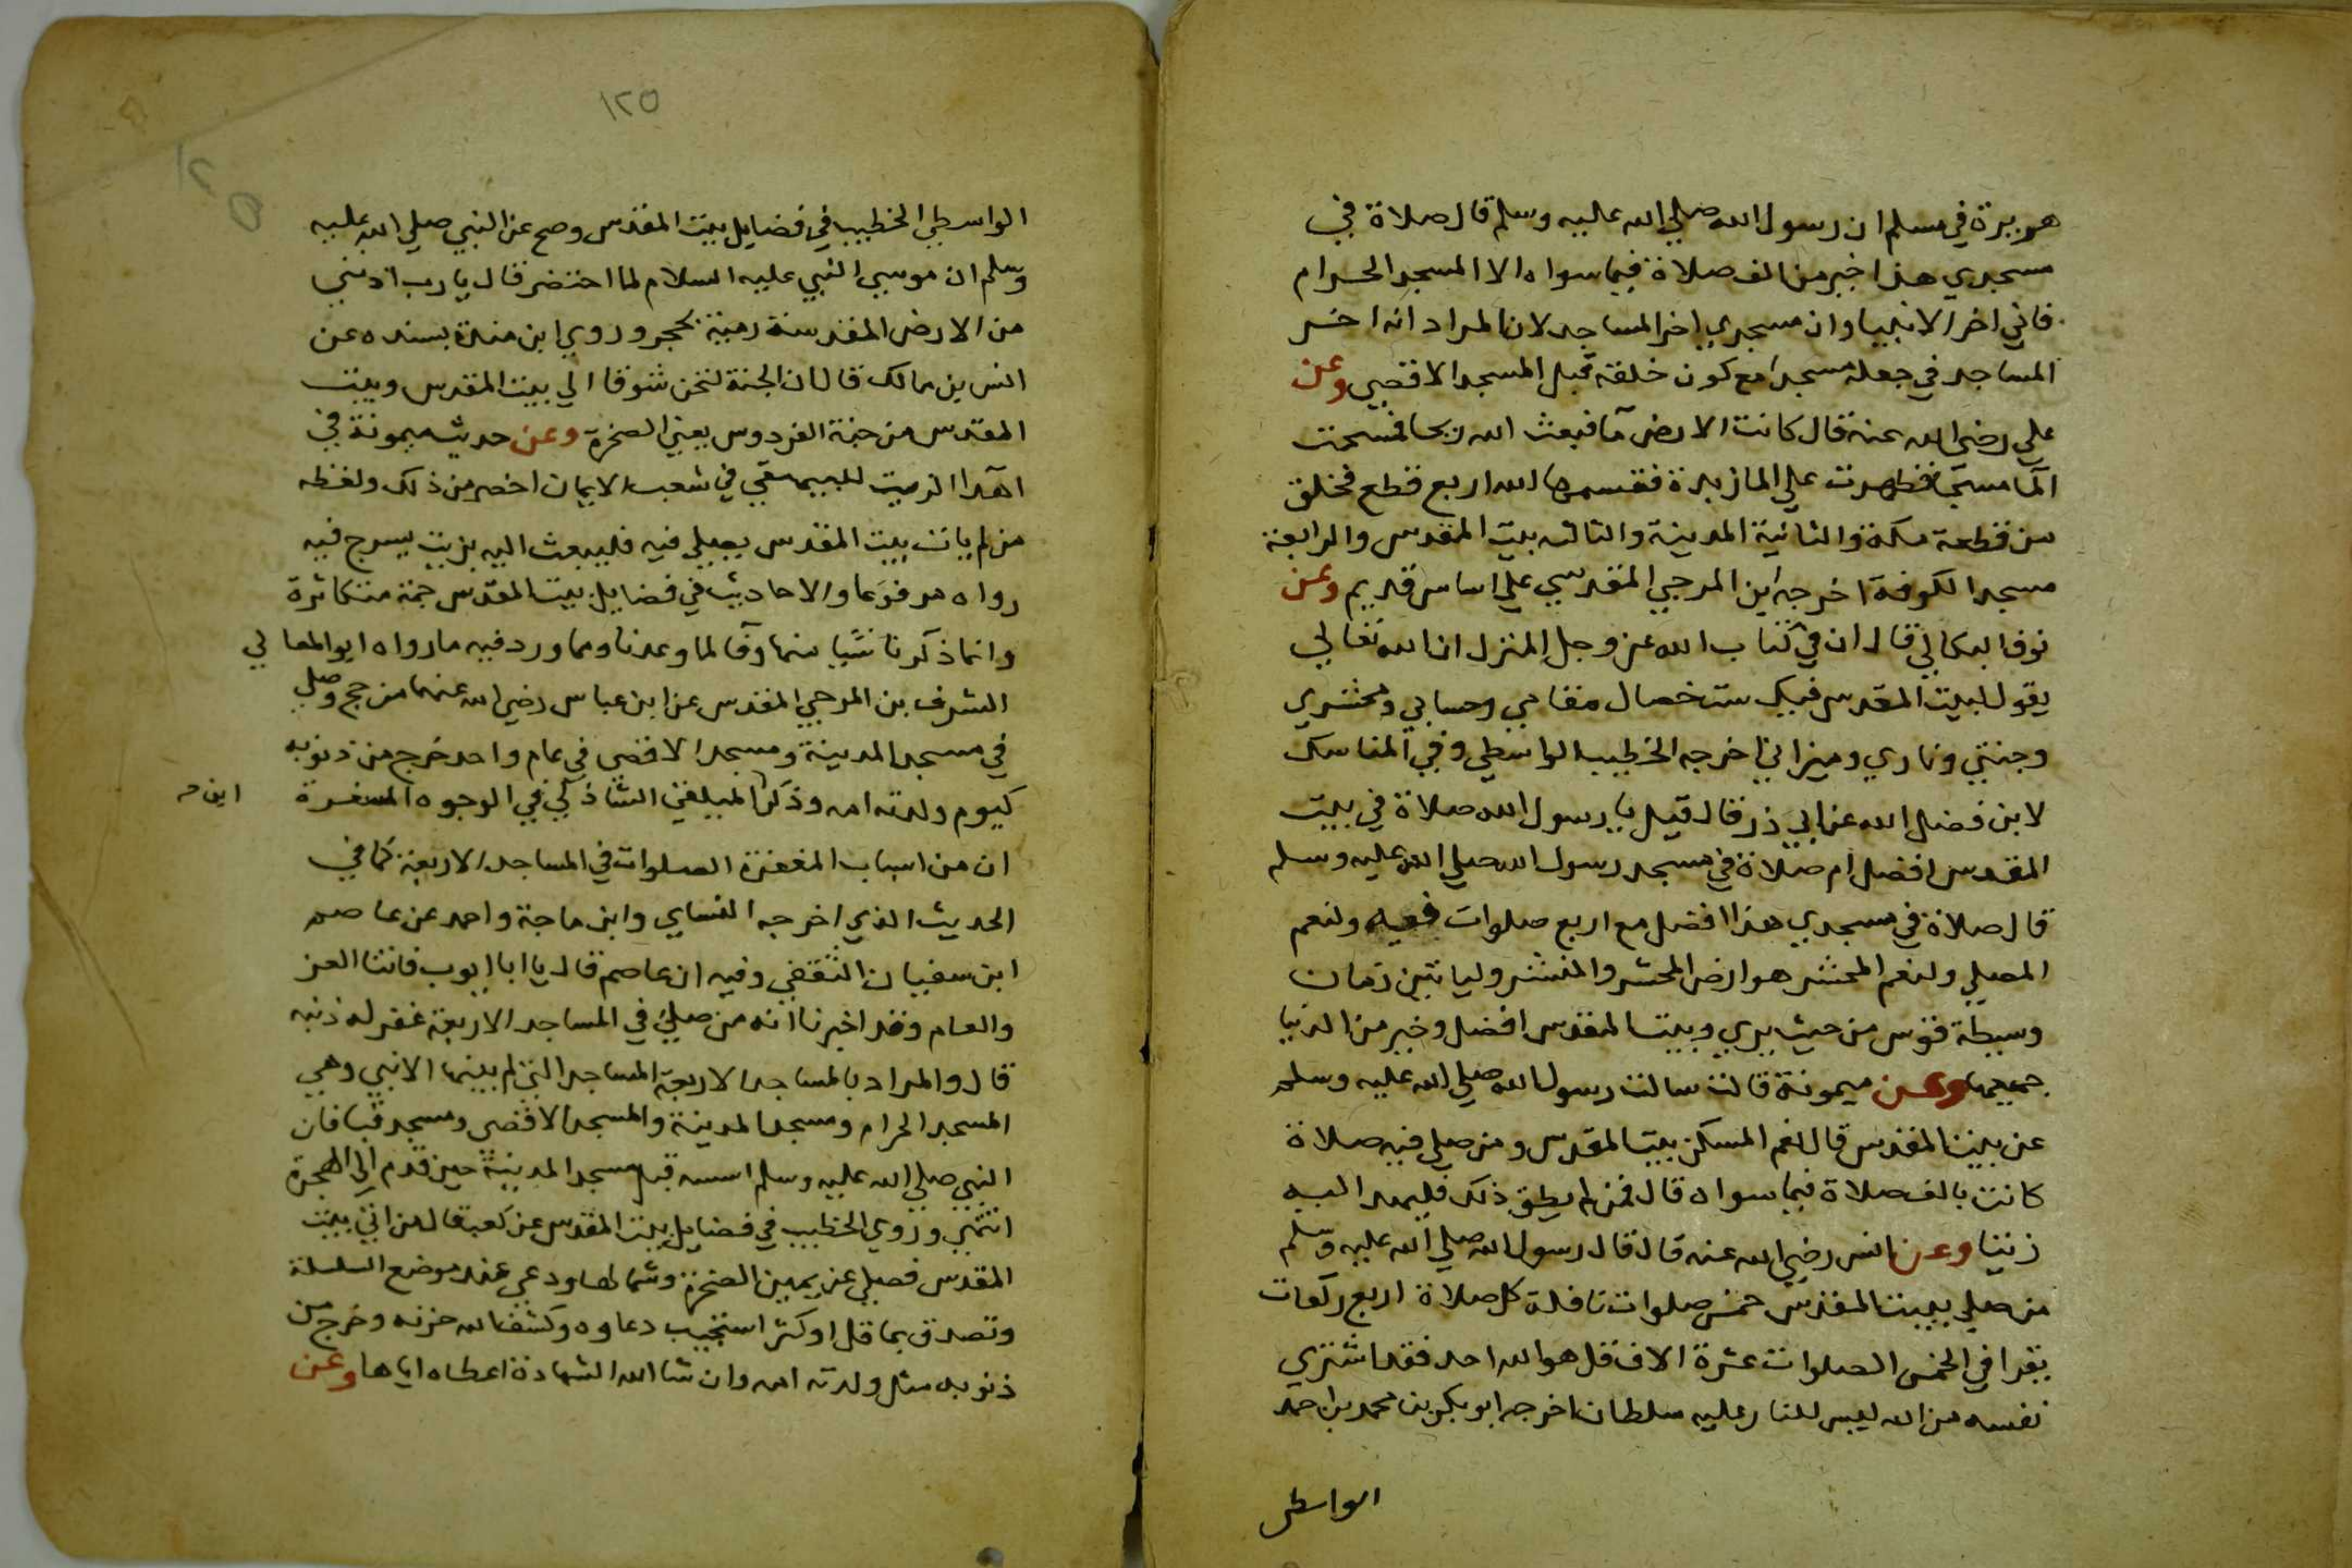 هريرة في مسلم ان رسول الله صلي الله عليه وسلم قال صلاة في
مسجدي هذا خير من الف صلاة فيما سواه الا المسجد الحرام
فاني اخر الانبيا وان مسجدي اخر المساجد لان المراد انه اخر
المساجد في جعله مسجدا مع كون خلقته قبل المسجد الاقصي وعن
علي رضي الله عنه قال كانت الارض مآ فبعث الله ريحا فمسحت
المآ مسحا فظهرت علي الما زبدة فقسمها الله اربع قطع فخلق
من قطعة مكة والثانية المدينة والثالثه بيت المقدس والرابعة
مسجد الكوفة اخرجه ابن المرجي المقدسي علي اساس قديم وعن
نوف البكالي قال ان في كتاب الله عز وجل المنزل ان الله تعالي
يقول لبيت المقدس فيك ست خصال مقامي وحسابي ومحشري
وجنتي وناري وميزاني اخرجه الخطيب الواسطي وفي المناسك
لابن فضل الله عن ابي ذر قال قيل يا رسول الله صلاة في بيت
المقدس افضل ام صلاة في مسجد رسول الله صلي الله عليه وسلم
قال صلاة في مسجدي هذا افضل مع اربع صلوات فيه ولنعم
المصلي ولنعم المحشر هو ارض المحشر والمنشر وليا تين زمان
وسبطة قوس من حيث يري وبيت المقدس افضل وخير من الدنيا
جميعها وعن ميمونة قالت سالت رسول الله صلي الله عليه وسلم
عن بيت المقدس قال نعم المسكن بيت المقدس ومن صلي فيه صلاة
كانت بالف صلاة فيما سواه قال فمن لم يطق ذلك فليهد اليه
زيتا وعن انس رضي الله عنه قال قال رسول الله صلي الله عليه وسلم
من صلي ببيت المقدس خمس صلوات نافلة كل صلاة اربع ركعات
يقرا في الخمس الصلوات عشرة الاف قل هو الله احد فقد اشتري
نفسه من الله ليس للنار عليه سلطان اخرجه ابو بكر بن محمد بن احمد
الواسطي
١٢٥
١٢٥
الواسطي الخطيب في فضايل بيت المقدس وصح عن النبي صلي الله عليه
وسلم ان موسي النبي عليه السلام لما احتضر قال يا رب ادنني
من الارض المقدسة رمية بحجر وروي ابن مندة بسنده عن
انس بن مالك قال ان الجنة لتحن شوقا الي بيت المقدس وبيت
المقدس من جنة الفردوس يعني الصخرة وعن حديث ميمونة في
اهدآ الزيت للبيهقي في شعب الايمان اخصر من ذلك ولفظه
من لم يات بيت المقدس يصلي فيه فليبعث اليه بزيت يسرج فيه
رواه مرفوعا والاحاديث في فضايل بيت المقدس جمة متكاثرة
وانما ذكرنا شيا منها وفآ لما وعدنا ومما ورد فيه ما رواه ابو المعالي
الشرف بن المرجي المقدس عن ابن عباس رضي الله عنهما من حج وصلي
في مسجد المدينة ومسجد الاقصي في عام واحد خرج من ذنوبه
كيوم ولدته امه وذكر المبلغي الشاذلي في الوجوه المسفرة
ان من اسباب المغفرة الصلوات في المساجد الاربعة كما في
الحديث الذي اخرجه النساي وابن ماجة واحمد عن عاصم
ابن سفيان الثقفي وفيه ان عاصم قال يا ابا ايوب فاتنا الغز
والعام وقد اخبرنا انه من صلي في المساجد الاربعة غفر له ذنبه
قال والمراد بالمساجد الاربعة المساجد التي لم يبنها الا نبي وهي
المسجد الحرام ومسجد المدينة والمسجد الاقصي ومسجد قبا فان
النبي صلي الله عليه وسلم اسسه قبل مسجد المدينة حين قدم الي الهجرة
انتهي وروي الخطيب في فضايل بيت المقدس عن كعب قال من اتي بيت
المقدس فصلي عن يمين الصخرة وشمالها ودعي عند موضع السلسلة
وتصدق بما قل او كثر استجيب دعاوه وكشف الله حزنه وخرج من
ذنوبه مثل ولدته امه وان شا الله الشهادة اعطاه اياها وعن